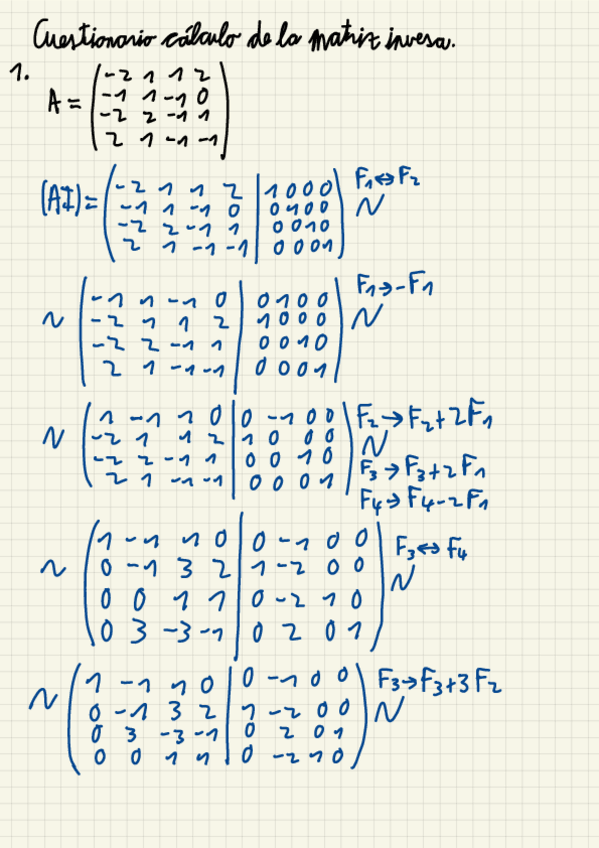 Cuestionario cálculo de la matriz inversa.
1.
A = (-2 1 1 2
-1 1 -1 0
-2 2 -1 1
2 1 -1 -1)
(AI) = (-2 1 1 2 | 1 0 0 0
-1 1 -1 0 | 0 1 0 0
-2 2 -1 1 | 0 0 1 0
2 1 -1 -1 | 0 0 0 1) F1↔F2 ~
~ (-1 1 -1 0 | 0 1 0 0
-2 1 1 2 | 1 0 0 0
-2 2 -1 1 | 0 0 1 0
2 1 -1 -1 | 0 0 0 1) F1→-F1 ~
~ (1 -1 1 0 | 0 -1 0 0
-2 1 1 2 | 1 0 0 0
-2 2 -1 1 | 0 0 1 0
2 1 -1 -1 | 0 0 0 1) F2→F2+2F1 ~
F3→F3+2F1
F4→F4-2F1
~ (1 -1 1 0 | 0 -1 0 0
0 -1 3 2 | 1 -2 0 0
0 0 1 1 | 0 -2 1 0
0 3 -3 -1 | 0 2 0 1) F3↔F4 ~
~ (1 -1 1 0 | 0 -1 0 0
0 -1 3 2 | 1 -2 0 0
0 3 -3 -1 | 0 2 0 1
0 0 1 1 | 0 -2 1 0) F3→F3+3F2 ~